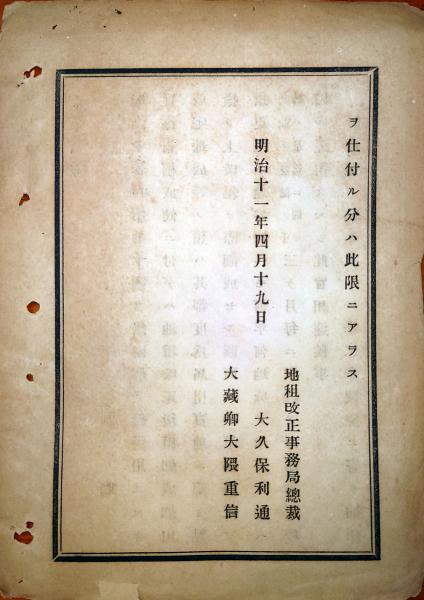 ヲ仕付ル分ハ此限ニアラス
地租改正事務局總裁
明治十一年四月十九日
大久保利通
大藏卿大隈重信